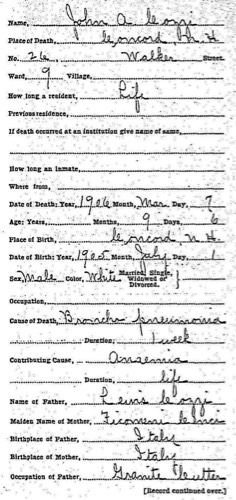 Name, John A. Cozzi
Place of Death, Concord, N. H.
No. 26 Walker Street.
Ward, 9 Village,
How long a resident, Life
Previous residence,
If death occurred at an institution give name of same,
How long an inmate,
Where from,
Date of Death: Year, 1906 Month, Mar Day, 7
Age: Years, Months, 9 Days, 6
Place of Birth, Concord N. H.
Date of Birth: Year, 1905 Month, July Day, 1
Sex, Male Color, White Married, Single, Widowed or Divorced.
Occupation,
Cause of Death, Broncho pneumonia
Duration, 1 week
Contributing Cause, Anaemia
Duration, life
Name of Father, Lewis Cozzi
Maiden Name of Mother,
Birthplace of Father, Italy
Birthplace of Mother, Italy
Occupation of Father, Granite Cutter
[Record continued over.]